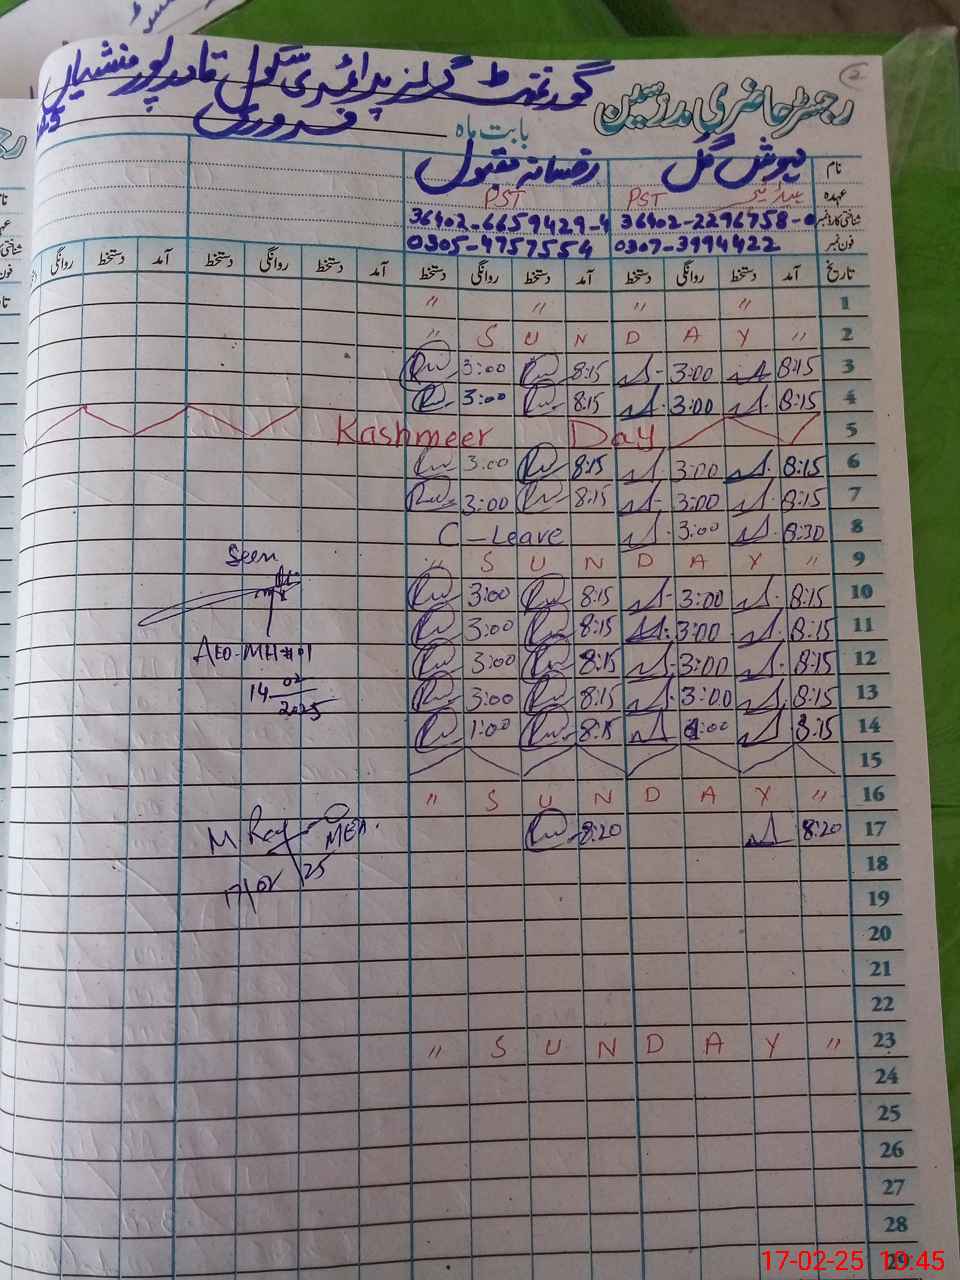 رجسٹر حاضری مدرسین گورنمنٹ گرلز پرائمری سکول قادر پور منشیاں
بابت ماہ فروری
نام مہوش گل رخسانہ مقبول
عہدہ PST PST
شناختی کارڈ نمبر 36402-2296758-0 36402-6659429-4
فون نمبر 0307-3994422 0305-4757554
تاریخ آمد دستخط روانگی دستخط آمد دستخط روانگی دستخط آمد دستخط روانگی دستخط آمد دستخط روانگی
1 " " " "
2 " S U N D A Y "
3 8:15 3:00 8:15 3:00
4 8:15 3:00 8:15 3:00
5 Kashmeer Day
6 8:15 3:00 8:15 3:00
7 8:15 3:00 8:15 3:00
8 8:30 3:00 C-Leave
9 S U N D A Y "
Seen
10 8:15 3:00 8:15 3:00
11 8:15 3:00 8:15 3:00
12 8:15 3:00 8:15 3:00
AEO-MH#01
13 8:15 3:00 8:15 3:00
14 02 2025
14 8:15 1:00 8:15 1:00
15
16 " S U N D A Y "
17 8:20 8:20
MEA.
17/02/25
18
19
20
21
22
23 " S U N D A Y "
24
25
26
27
28
29
17-02-25 10:45